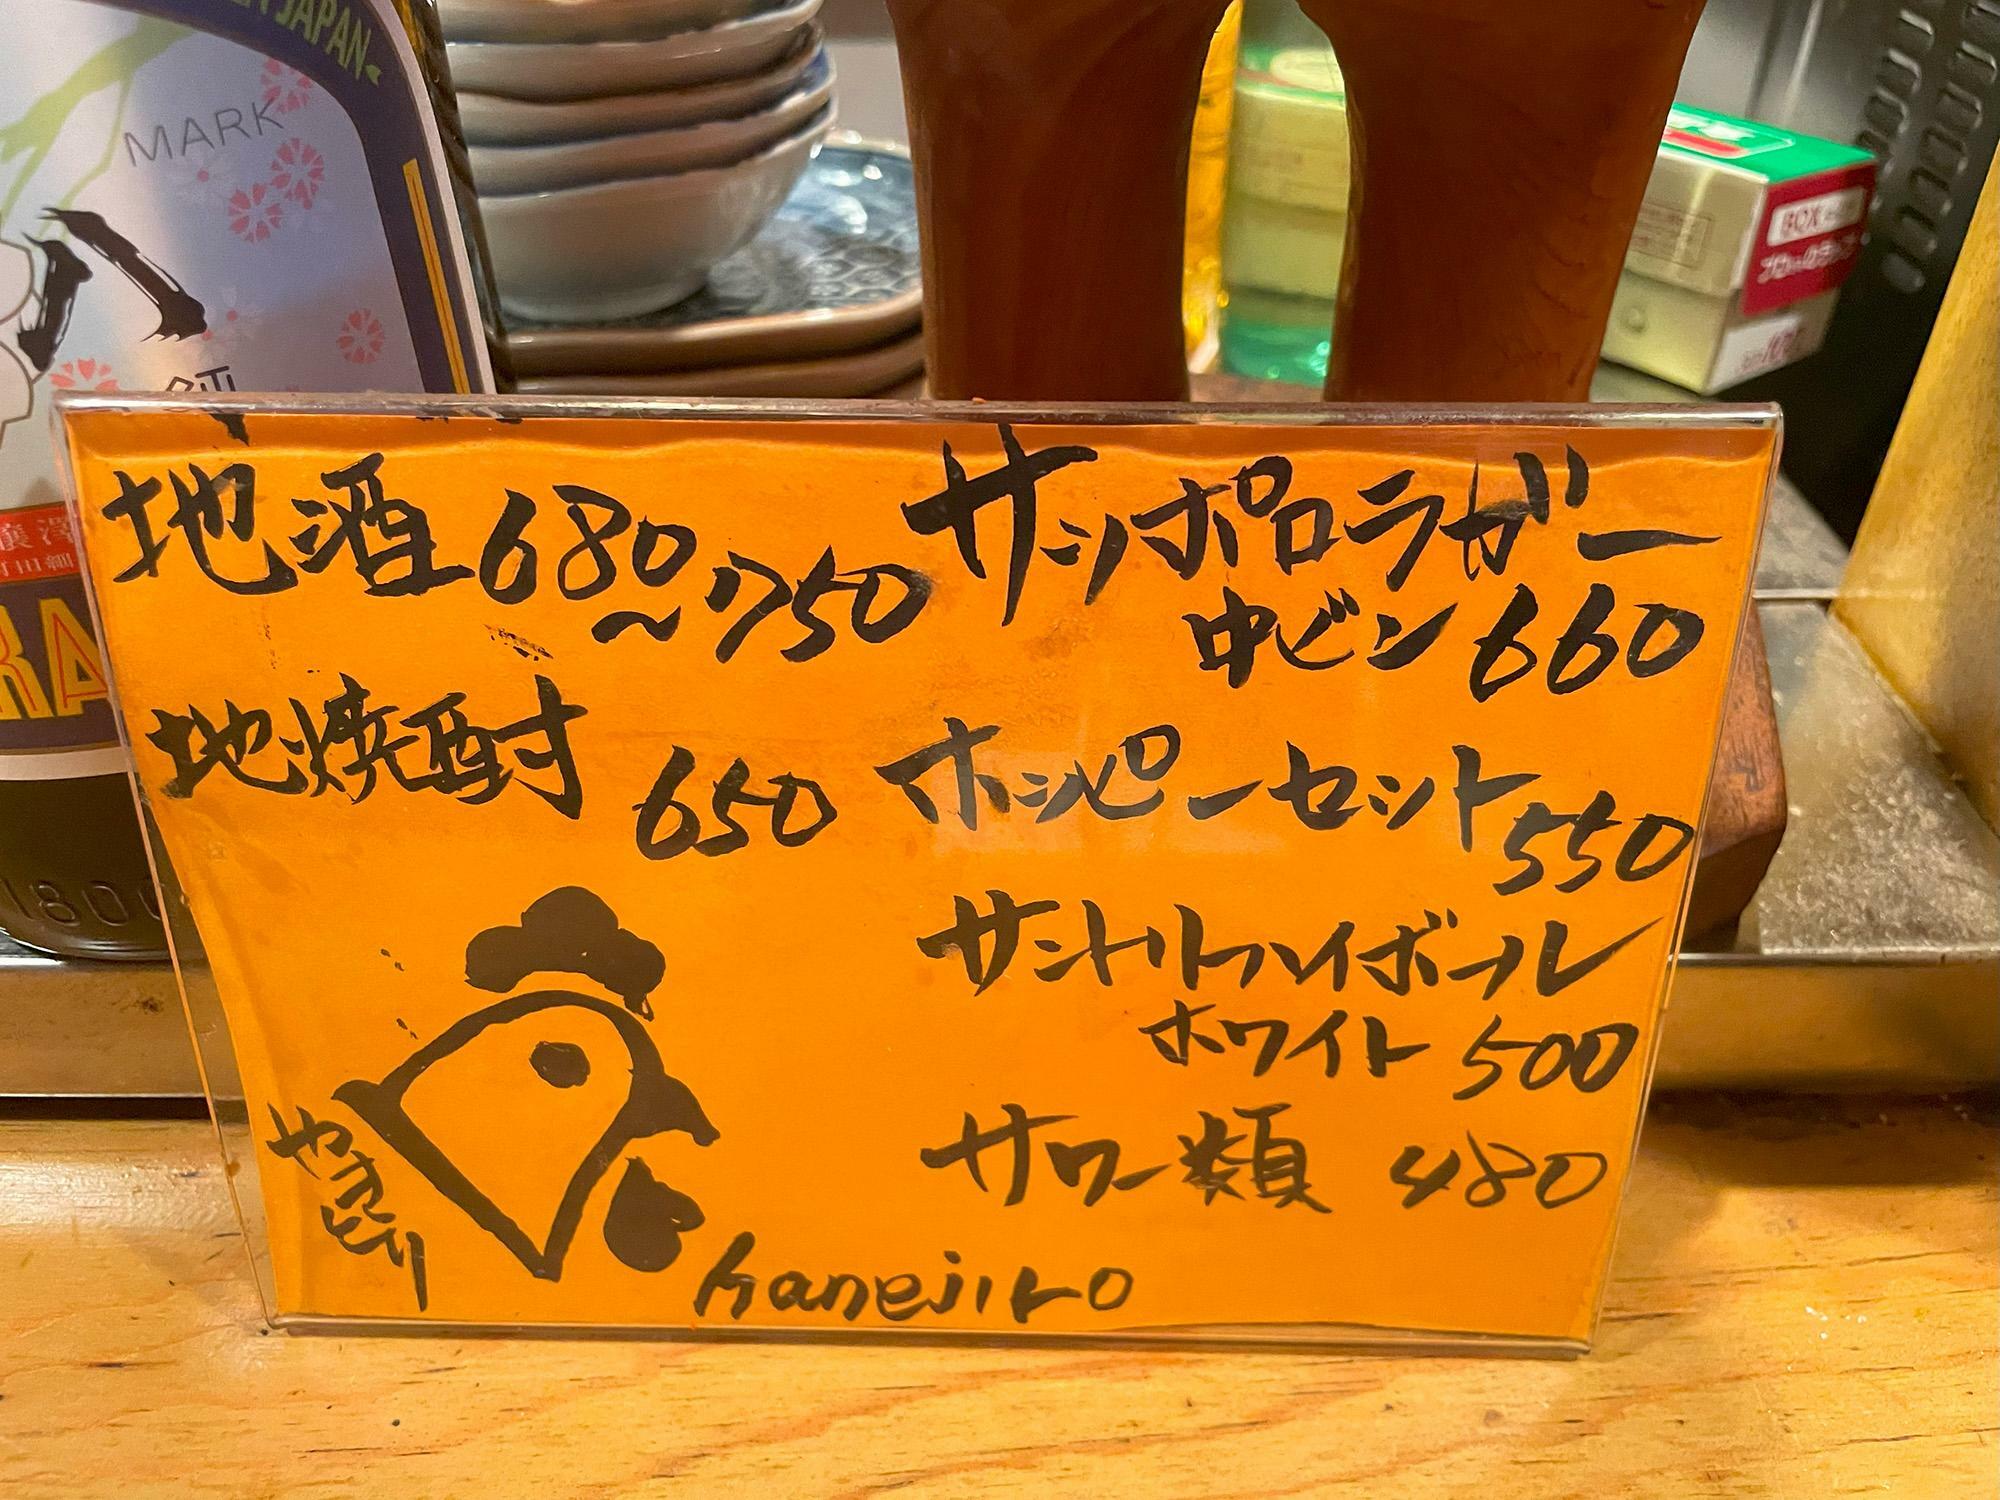 JAPAN
MARK
八
1800
BOX
地酒 680～750
地焼酎 650
サッポロラガー
中ビン 660
ホッピーセット 550
サントリーハイボール
ホワイト 500
サワー類 480
やきとり
kanejiro